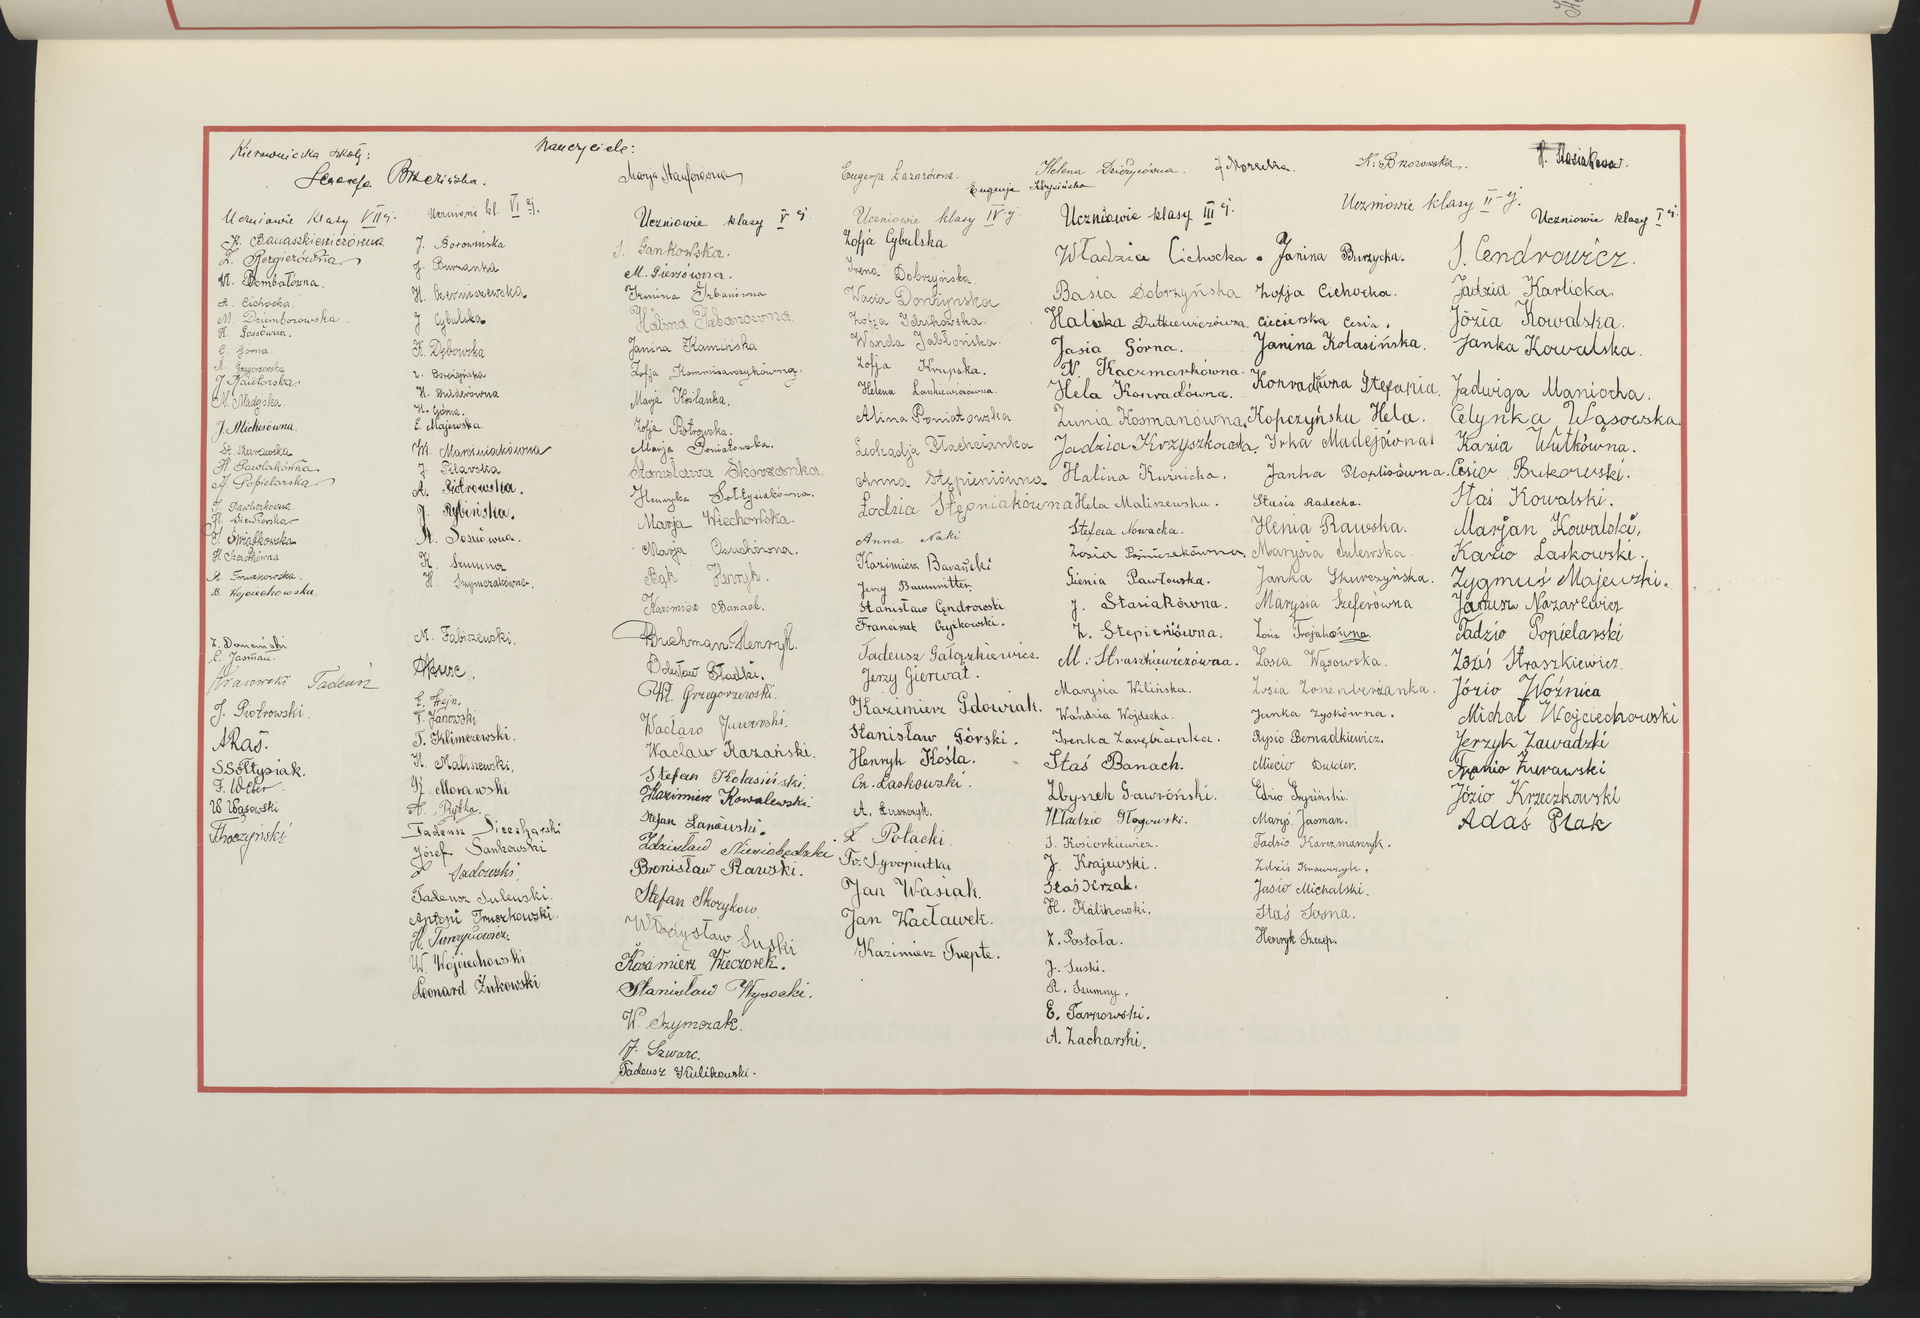 Kierowniczka szkoły:
Brzezińska.
Nauczyciele:
Marja
Eugenja Lazarówna.
Helena
Eugenja Krysińska
K. Brzozowska.
Uczniowie klasy VII ej.
K. Banaszkiewiczówna
Z. Bergierówna
M. Dombałówna.
A. Cichocka.
M. Dziemborowska.
K. Gossówna.
E. Górna.
M. Grzegorzewska
J. Kantorska
M. Madejska.
J. Michcówna.
St. Murawska
H. Pawlakówna
M. Popielarska
H. Siewierska
S. Świątkowska
H. Szczotkówna
A. Truszkowska.
B. Wojciechowska
Z. Domański
C. Jasman.
Krasowski Tadeusz
J. Piotrowski.
A Raś.
S Sołtysiak.
F. Weber.
W Wąsowski
Uczniowie kl. VI ej.
J. Borowińska
J. Burzanka
H. Czerniszewska
J Cybulska
K. Dębowska
K. Górna.
E. Majewska.
M. Marciniakówna
J. Pilarska
A. Piotrowska.
J. Rybińska.
A. Sosnówna.
K. Szumna
H. Szymczakówna.
N. Fabiszewski.
E. Hejn.
T. Janowski
T. Klimczewski.
H. Maliszewski.
R. Morawski
H. Piętka.
Tadeusz Siecicharski
Józef Sankowski
Z Sadowski
Tadeusz Sulewski.
Antoni Truszkowski.
W. Wojciechowski
Leonard Żukowski
Uczniowie klasy V ej
S. Gankowska.
M. Giersówna.
Irmina Irbanówna
Halina Jabonówna
Janina Kamińska
Zofja Kommisarczykówna.
Marja Koślanka.
Zofja Piotrowska.
Marja Poniatowska.
Stanisława Skowronka.
Henryka Sołtysiakówna.
Marja Wiechowska.
Marja Ozuchówna.
Bąk Henryk.
Kazimierz Banach.
Bruchman Henryk.
Bolesław Gładki.
Wł. Grzegorzewski.
Wacław Jaworski.
Wacław Kazański.
Stefan Kolasiński.
Kazimierz Kowalewski.
Stefan Łanowski.
Zdzisław Niesiobędzki
Bronisław Rawski.
Stefan Skorykow
Władysław Suski
Kazimierz Wieczorek.
Stanisław Wysocki.
W. Szymczak.
J. Szwarc.
Tadeusz Kulikowski.
Uczniowie klasy IV-ej
Zofja Cybulska
Irena Dobrzyńska.
Wacia Dobrzyńska
Zofja Idzikowska.
Wanda Jabłońska.
Zofja Krupska.
Helena Lankiewiczówna.
Alina Poniatowska
Leokadja Płachcianka
Anna Stępieniówna
Łodzia Stępniakówna
Anna Naki
Kazimierz Barański
Jerzy Baummitter.
Stanisław Cendrowski
Franciszek Czyżkowski.
Tadeusz Gałązkiewicz.
Jerzy Gierwat.
Kazimierz Gdowiak.
Stanisław Górski.
Henryk Kośla.
Cz. Laskowski.
Z. Połacki
Fr. Syropiatka
Jan Wasiak.
Jan Wacławek.
Kazimierz Trepte.
Uczniowie klasy III ej.
Władzia Cichocka.
Basia Dobrzyńska
Halinka Dutkiewiczówna.
Jasia Górna.
N. Kaczmarkówna.
Hela Konradówna.
Zunia Kosmanówna.
Jadzia Krzyszkowska.
Halina Kurnicka.
Hela Maliszewska.
Stefcia Nowacka.
Zosia Pośnieżekówna.
Gienia Pawłowska.
J. Stasiakówna.
Z. Stepieniówna.
M. Straszkiewiczówna.
Marysia Wilińska.
Wandzia Wojdecka.
Irenka Zarębianka.
Staś Banach.
Zbyszek Gawroński.
Władzio Głogowski.
S. Kosiorkiewicz.
J. Krajewski.
Staś Krzak.
H. Kalikowski.
Z. Postoła.
J. Suski.
R. Szumny.
E. Tarnowski.
A. Zacharski.
Uczniowie klasy II-ej.
Janina Burzycka.
Zofja Cichocka.
Ciecierska Cesia.
Janina Kolasińska.
Konradówna Stefania.
Kopczyńska Hela.
Irka Madejówna
Janka Płoplisówna.
Stasia Radecka.
Henia Rawska.
Marysia Sulewska.
Janka Skurczyńska.
Marysia Szeferówna
Zosia Trojakówna.
Zosia Wąsowska.
Zosia Zonenberżanka.
Janka Zyskówna.
Rysio Bernadkiewicz.
Miecio Dudder.
Edzio Gryziński.
Maryś Jasman.
Tadzio Karczmarczyk.
Zdziś Krawczyk.
Jasio Michalski.
Staś Sosna.
Henryk Szczep.
Uczniowie klasy I ej
J. Cendrowicz.
Jadzia Karlicka.
Józia Kowalska.
Janka Kowalska.
Jadwiga Maniocha.
Celynka Wąsowska.
Kazia Wutkówna.
Cesio Bukowski.
Staś Kowalski.
Marjan Kowalski.
Kazio Laskowski.
Zygmuś Majewski.
Janusz Nazarewicz
Tadzio Popielarski
Zdziś Straszkiewicz.
Józio Woźnica
Michał Wojciechowski
Jerzyk Zawadzki
Franio Żurawski
Józio Krzeczkowski
Adaś Ptak